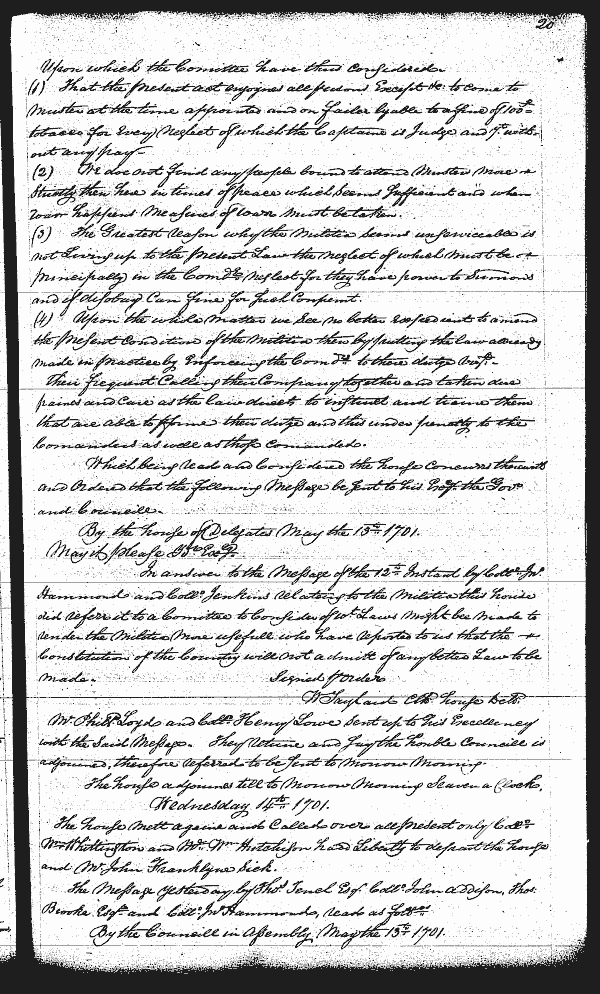 20
Upon which the Comittee have thus considered.
(1) That the present act enjoynes all persons Except &c: to come to
muster at the time appointed and on failer lyable to a fine of 100lb
tobacco for Every neglect of which the Captaine is Judge and with-
out any pay
(2) We doe not find any people bound to attend Muster more
strictly then here in times of peace which seems sufficient and when
warr happens Measures of warr must be taken.
(3) The Greatest reason why the Militia seems unserviceable is
not Living up to the present Law the neglect of which must be
principally in the Comdrs neglect for they have power to Summons
and if disobey Can fine for such Contempt.
(4) Upon the whole matter we see no better expedient to amend
the present Condition of the Militia then by putting the law already
made in practice by Enforceing the Comdrs to there dutye
their frequent Calling their Company together and taken due
paines and Care as the law directs to instruct and traine them
that are able to pforme their dutye and this under penalty to the
Comanders as well as those Comanded.
Which being read and Considered the house concurrs therewith
and Ordered that the following Message be sent to his Excy the Govr
and Councill.
By the house of Delegates May the 13th 1701.
May it please Yor Excy
In answer to the Message of the 12th Instant by Collo Jno
Hammond and Collo Jenkins relateing to the Militia this house
did referr it to a Comittee to Consider of wt Laws might be made to
render the Militia More usefull who have reported to us that the
Constitution of the Country will not admitt of any better Law to be
made. Signed p Order
W Taylard Clk house Del.
Mr Phill Loyd and Collo Henry Lowe sent up to his Excellency
with the Said Message. They returne and say the honble Councill is
adjourned, therefore referred to be sent to Morrow Morning.
The house adjournes till to Morrow Morning Seaven a Clock.
Wednesday 14th 1701.
The house mett againe and Called over all present only Collo
Whittington and Mr Wm Hutchison had Liberty to depart the house
and Mr John Franklyn Sick.
The Message yesterday by Thos Tench Esqr Collo John addison, Thos
Brooke Esqr and Collo Jno Hammonds, reade as follows
By the Councill in Assembly May the 13th 1701.